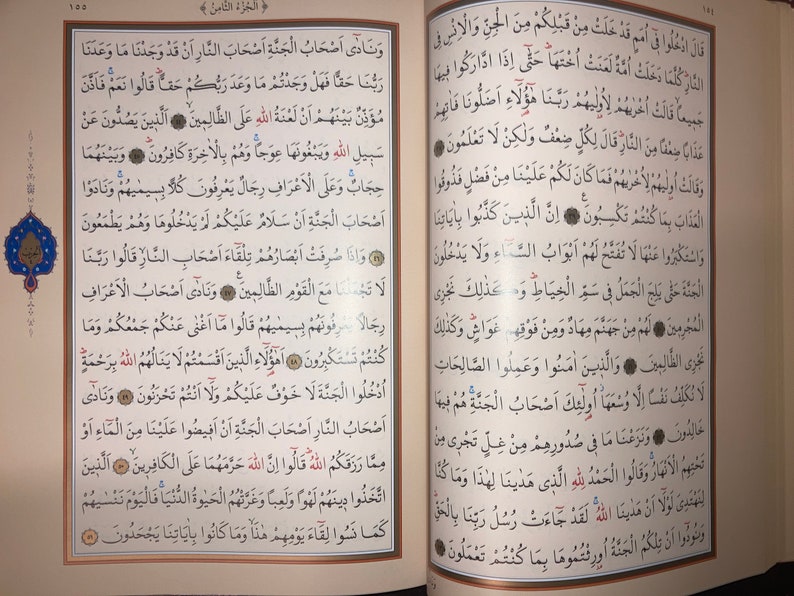 ١٥٤
قَالَ ادْخُلُوا فٖٓي اُمَمٍ قَدْ خَلَتْ مِنْ قَبْلِكُمْ مِنَ الْجِنِّ وَالْاِنْسِ فِي
النَّارِؕ كُلَّمَا دَخَلَتْ اُمَّةٌ لَعَنَتْ اُخْتَهَاؕ حَتّٰٓى اِذَا ادَّارَكُوا فٖيهَا
جَمٖيعاًۙ قَالَتْ اُخْرٰيهُمْ لِاُو۫لٰيهُمْ رَبَّنَا هٰٓؤُ۬لَٓاءِ اَضَلُّونَا فَاٰتِهِمْ
عَذَاباً ضِعْفاً مِنَ النَّارِؕ قَالَ لِكُلٍّ ضِعْفٌ وَلٰكِنْ لَا تَعْلَمُونَ
وَقَالَتْ اُو۫لٰيهُمْ لِاُخْرٰيهُمْ فَمَا كَانَ لَكُمْ عَلَيْنَا مِنْ فَضْلٍ فَذُوقُوا
الْعَذَابَ بِمَا كُنْتُمْ تَكْسِبُونَࣖ ٣٩ اِنَّ الَّذٖينَ كَذَّبُوا بِاٰيَاتِنَا
وَاسْتَكْبَرُوا عَنْهَا لَا تُفَتَّحُ لَهُمْ اَبْوَابُ السَّمَٓاءِ وَلَا يَدْخُلُونَ
الْجَنَّةَ حَتّٰى يَلِجَ الْجَمَلُ فٖي سَمِّ الْخِيَاطِؕ وَكَذٰلِكَ نَجْزِي
الْمُجْرِمٖينَ لَهُمْ مِنْ جَهَنَّمَ مِهَادٌ وَمِنْ فَوْقِهِمْ غَوَاشٍؕ وَكَذٰلِكَ
نَجْزِي الظَّالِمٖينَ وَالَّذٖينَ اٰمَنُوا وَعَمِلُوا الصَّالِحَاتِ
لَا نُكَلِّفُ نَفْساً اِلَّا وُسْعَهَاۘ اُو۬لٰٓئِكَ اَصْحَابُ الْجَنَّةِۚ هُمْ فٖيهَا
خَالِدُونَ وَنَزَعْنَا مَا فٖي صُدُورِهِمْ مِنْ غِلٍّ تَجْرٖي مِنْ
تَحْتِهِمُ الْاَنْهَارُۚ وَقَالُوا الْحَمْدُ لِلّٰهِ الَّذٖي هَدٰينَا لِهٰذَا وَمَا كُنَّا
لِنَهْتَدِيَ لَوْلَٓا اَنْ هَدٰينَا اللّٰهُۚ لَقَدْ جَٓاءَتْ رُسُلُ رَبِّنَا بِالْحَقِّؕ
وَنُودُٓوا اَنْ تِلْكُمُ الْجَنَّةُ اُو۫رِثْتُمُوهَا بِمَا كُنْتُمْ تَعْمَلُونَ
﴿ اَلْجُزْءُ الثَّامِنُ ﴾ ١٥٥
وَنَادٰٓى اَصْحَابُ الْجَنَّةِ اَصْحَابَ النَّارِ اَنْ قَدْ وَجَدْنَا مَا وَعَدَنَا
رَبُّنَا حَقاًّ فَهَلْ وَجَدْتُمْ مَا وَعَدَ رَبُّكُمْ حَقاًّؕ قَالُوا نَعَمْۚ فَاَذَّنَ
مُؤَذِّنٌ بَيْنَهُمْ اَنْ لَعْنَةُ اللّٰهِ عَلَى الظَّالِمٖينَۙ ٤٤ اَلَّذٖينَ يَصُدُّونَ عَنْ
سَبٖيلِ اللّٰهِ وَيَبْغُونَهَا عِوَجاًۚ وَهُمْ بِالْاٰخِرَةِ كَافِرُونَؕ ٤٥ وَبَيْنَهُمَا
حِجَابٌۚ وَعَلَى الْاَعْرَافِ رِجَالٌ يَعْرِفُونَ كُلاًّ بِسٖيمٰيهُمْۚ وَنَادَوْا
اَصْحَابَ الْجَنَّةِ اَنْ سَلَامٌ عَلَيْكُمْ لَمْ يَدْخُلُوهَا وَهُمْ يَطْمَعُونَ
٤٦ وَاِذَا صُرِفَتْ اَبْصَارُهُمْ تِلْقَٓاءَ اَصْحَابِ النَّارِۙ قَالُوا رَبَّنَا
لَا تَجْعَلْنَا مَعَ الْقَوْمِ الظَّالِمٖينَࣖ ٤٧ وَنَادٰٓى اَصْحَابُ الْاَعْرَافِ
رِجَالاً يَعْرِفُونَهُمْ بِسٖيمٰيهُمْ قَالُوا مَٓا اَغْنٰى عَنْكُمْ جَمْعُكُمْ وَمَا
كُنْتُمْ تَسْتَكْبِرُونَ ٤٨ اَهٰٓؤُ۬لَٓاءِ الَّذٖينَ اَقْسَمْتُمْ لَا يَنَالُهُمُ اللّٰهُ بِرَحْمَةٍؕ
اُدْخُلُوا الْجَنَّةَ لَا خَوْفٌ عَلَيْكُمْ وَلَٓا اَنْتُمْ تَحْزَنُونَ ٤٩ وَنَادٰٓى
اَصْحَابُ النَّارِ اَصْحَابَ الْجَنَّةِ اَنْ اَفٖيضُوا عَلَيْنَا مِنَ الْمَٓاءِ اَوْ
مِمَّا رَزَقَكُمُ اللّٰهُؕ قَالُٓوا اِنَّ اللّٰهَ حَرَّمَهُمَا عَلَى الْكَافِرٖينَۙ ٥٠ اَلَّذٖينَ
اتَّخَذُوا دٖينَهُمْ لَهْواً وَلَعِباً وَغَرَّتْهُمُ الْحَيٰوةُ الدُّنْيَاۚ فَالْيَوْمَ نَنْسٰيهُمْ
كَمَا نَسُوا لِقَٓاءَ يَوْمِهِمْ هٰذَاۙ وَمَا كَانُوا بِاٰيَاتِنَا يَجْحَدُونَ ٥١